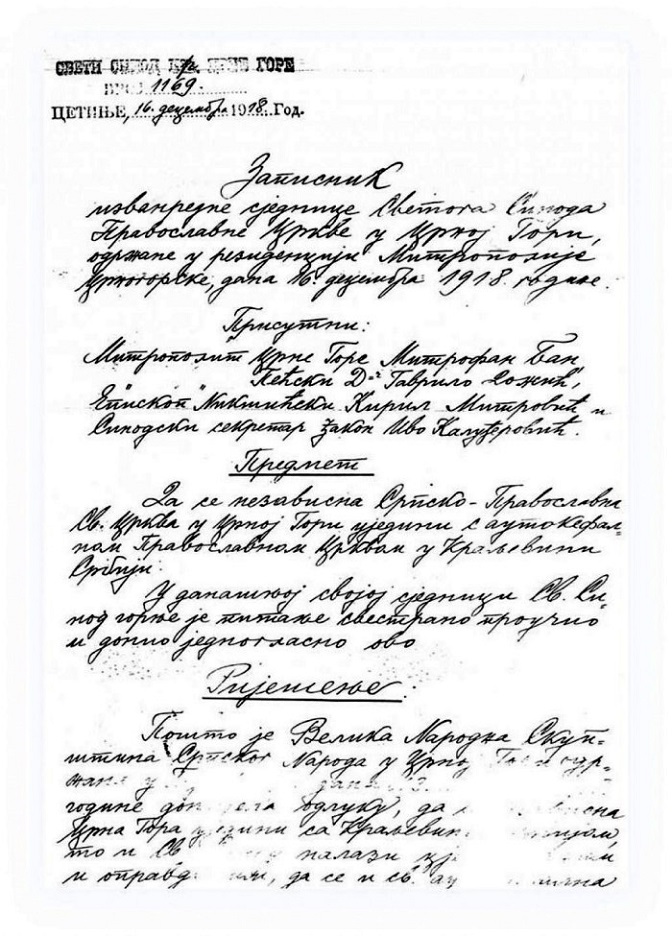 СВЕТИ СИНОД Кр. ЦРНЕ ГОРЕ
БРОЈ 1169.
ЦЕТИЊЕ, 16. децембра 1918. Год.
Записник
изванредне сједнице Светога Синода
Православне Цркве у Црној Гори,
одржане у резиденцији Митрополије
Црногорске, дана 16. децембра 1918. године.
Присутни:
Митрополит Црне Горе Митрофан Бан
Пећски Др Гаврило Дожић,
Епископ Никшићски Кирил Митровић и
Синодски секретар ђакон Иво Калуђеровић.
Предмет
Да се независна Српско-Православна
Св. Црква у Црној Гори уједини с аутокефал-
ном Православном Црквом у Краљевини
Србији.
У данашњој својој сједници Св. Си-
нод горње је питање свестрано проучио
и донио једногласно ово
Ријешење:
Пошто је Велика Народна Скуп-
штина Српског Народа у Црној
године одлуку, да
Црна Гора уједини са
то и Св налази
и да се и св.